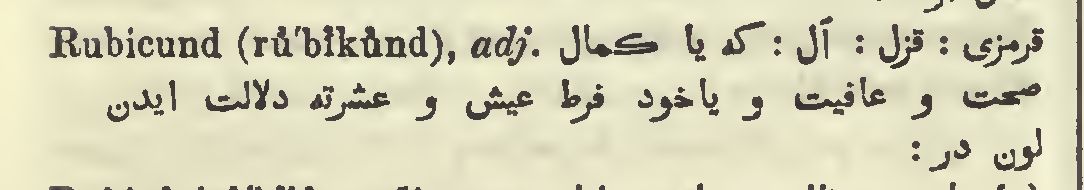 Rubicund (rŭ′bĭkŭnd), adj. قرمزی : قزل : آل : که یا کمال
صحت و عافیت و یاخود فرط عیش و عشرته دلالت ایدن
لون در :